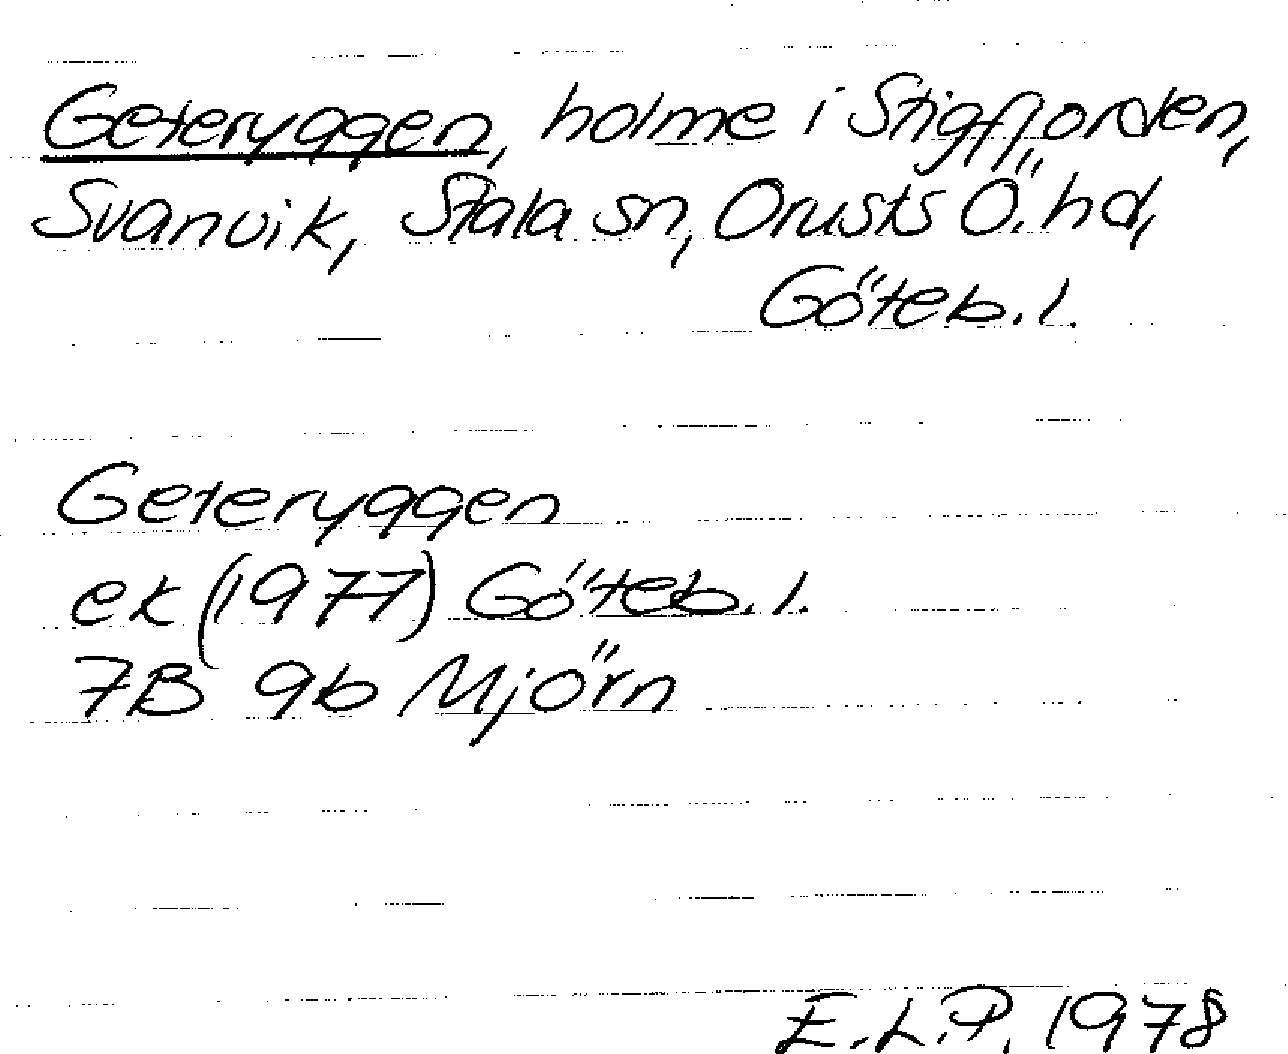 Geteryggen, holme i Stigfjorden,
Svanvik, Stala sn, Orusts Ö. hd,
Göteb. l.
Geteryggen
ek (1977) Göteb. l.
7B 9b Mjörn
E.L.P. 1978